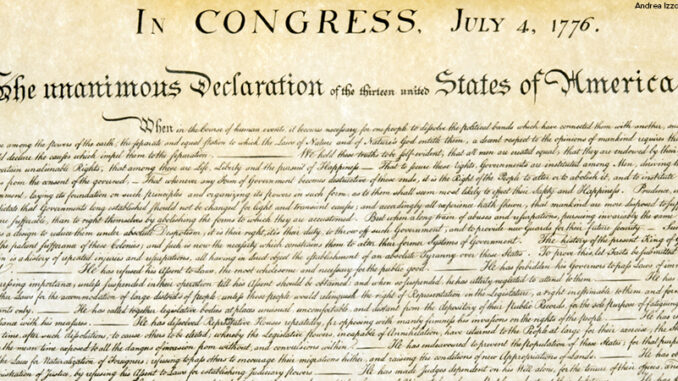 Andrea Izzo
IN CONGRESS, JULY 4, 1776.
The unanimous Declaration of the thirteen united States of America
When in the Course of human events, it becomes necessary for one people to dissolve the political bands which have connected them with another, and
among the powers of the earth, the separate and equal station to which the Laws of Nature and of Nature's God entitle them, a decent respect to the opinions of mankind requires th
declare the causes which impel them to the separation. We hold these truths to be self-evident, that all men are created equal, that they are endowed by their
certain unalienable Rights, that among these are Life, Liberty and the pursuit of Happiness. — That to secure these rights, Governments are instituted among Men, deriving th
from the consent of the governed, — That whenever any Form of Government becomes destructive of these ends, it is the Right of the People to alter or to abolish it, and to institute
laying its foundation on such principles and organizing its powers in such form, as to them shall seem most likely to effect their Safety and Happiness. Prudence, in
that Governments long established should not be changed for light and transient causes; and accordingly all experience hath shewn, that mankind are more disposed to suff
sufferable, than to right themselves by abolishing the forms to which they are accustomed. But when a long train of abuses and usurpations, pursuing invariably the same
a design to reduce them under absolute Despotism, it is their right, it is their duty, to throw off such Government, and to provide new Guards for their future security. — Such
the patient sufferance of these Colonies; and such is now the necessity which constrains them to alter their former Systems of Government. The history of the present King of
is a history of repeated injuries and usurpations, all having in direct object the establishment of an absolute Tyranny over these States. To prove this, let Facts be submitted
He has refused his Assent to Laws, the most wholesome and necessary for the public good. He has forbidden his Governors to pass Laws of imm
pressing importance, unless suspended in their operation till his Assent should be obtained; and when so suspended, he has utterly neglected to attend to them. He ha
other Laws for the accommodation of large districts of people, unless those people would relinquish the right of Representation in the Legislature, a right inestimable to them and form
only. He has called together legislative bodies at places unusual, uncomfortable, and distant from the depository of their public Records, for the sole purpose of fatiguing
with his measures. He has dissolved Representative Houses repeatedly, for opposing with manly firmness his invasions on the rights of the people. He ha
time, after such dissolutions, to cause others to be elected; whereby the Legislative powers, incapable of Annihilation, have returned to the People at large for their exercise; the Sta
time exposed to all the dangers of invasion from without, and convulsions within. He has endeavoured to prevent the population of these States; for that purpos
the Laws for Naturalization of Foreigners; refusing to pass others to encourage their migrations hither, and raising the conditions of new Appropriations of Lands. He ha
of Justice, by refusing his Assent to Laws for establishing Judiciary powers. He has made Judges dependent on his Will alone, for the tenure of their offices, and